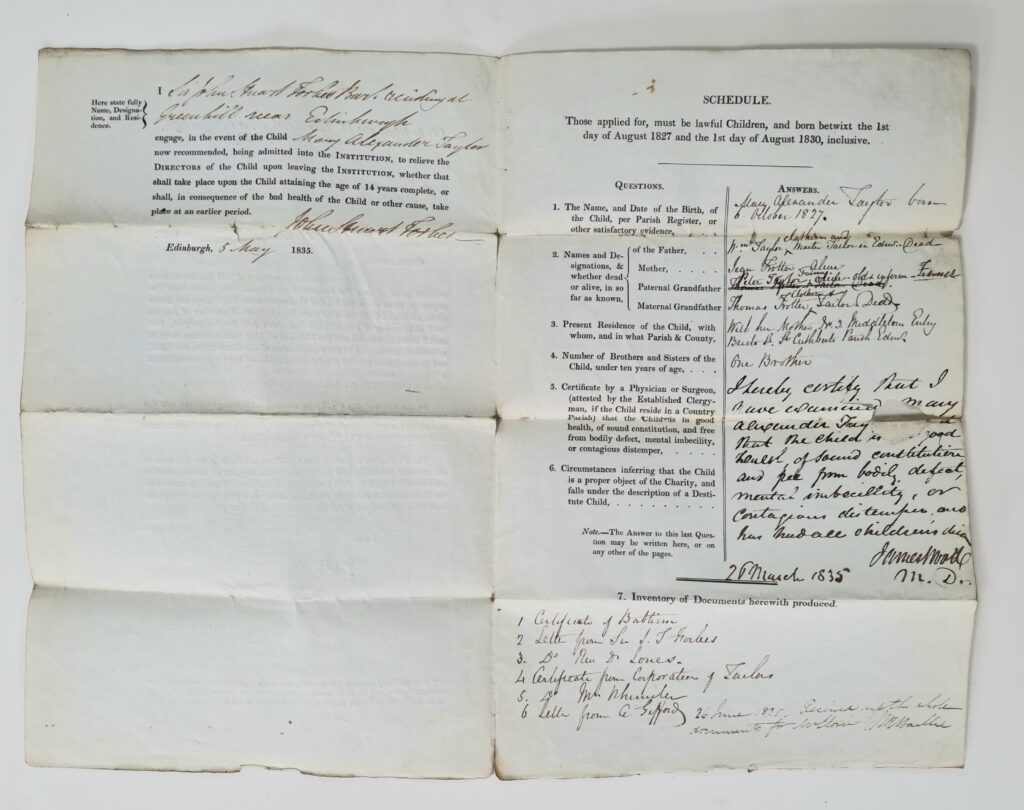 Here state fully
Name, Designa-
tion, and Resi-
dence.
I Sir John Stuart Forbes Bart. residing at
Greenhill near Edinburgh
engage, in the event of the Child Mary Alexander Taylor
now recommended, being admitted into the INSTITUTION, to relieve the
DIRECTORS of the Child upon leaving the INSTITUTION, whether that
shall take place upon the Child attaining the age of 14 years complete, or
shall, in consequence of the bad health of the Child or other cause, take
place at an earlier period.
John Stuart Forbes
Edinburgh, 5 May 1835.
SCHEDULE.
Those applied for, must be lawful Children, and born betwixt the 1st
day of August 1827 and the 1st day of August 1830, inclusive.
QUESTIONS.
ANSWERS.
1. The Name, and Date of the Birth, of
the Child, per Parish Register, or
other satisfactory evidence,
Mary Alexander Taylor born
6 October 1827.
2. Names and De-
signations, &
whether dead
or alive, in so
far as known,
of the Father,
Mother,
Paternal Grandfather
Maternal Grandfather
Wm. Taylor Clothier and Master Tailor in Edinr. Dead
Jean Trotter Alive
Peter Taylor alive old & infirm Farmer
Thomas Trotter Clothier & Tailor Dead
3. Present Residence of the Child, with
whom, and in what Parish & County,
With her Mother, No. 3 Middletons Entry
St. Cuthberts Parish Edinr.
4. Number of Brothers and Sisters of the
Child, under ten years of age,
One Brother
5. Certificate by a Physician or Surgeon,
(attested by the Established Clergy-
man, if the Child reside in a Country
Parish) that the Child is in good
health, of sound constitution, and free
from bodily defect, mental imbecility,
or contagious distemper,
I hereby certify that I
have examined Mary
Alexander Tay
that the child is good
health of sound constitution
and free from bodily defect,
mental imbecillity, or
contagious distemper and
has had all children's
James
M. D.
6. Circumstances inferring that the Child
is a proper object of the Charity, and
falls under the description of a Desti-
tute Child,
Note.—The Answer to this last Ques-
tion may be written here, or on
any other of the pages.
26 March 1835
7. Inventory of Documents herewith produced.
1 Certificate of Babtism
2 Letter from Sir J. S Forbes
3. Do Rev Dr
4 Certificate from Corporation of Tailors
5. Do Mr
6 Letter from A Gifford
26 June 1835. Received up the whole
documents for